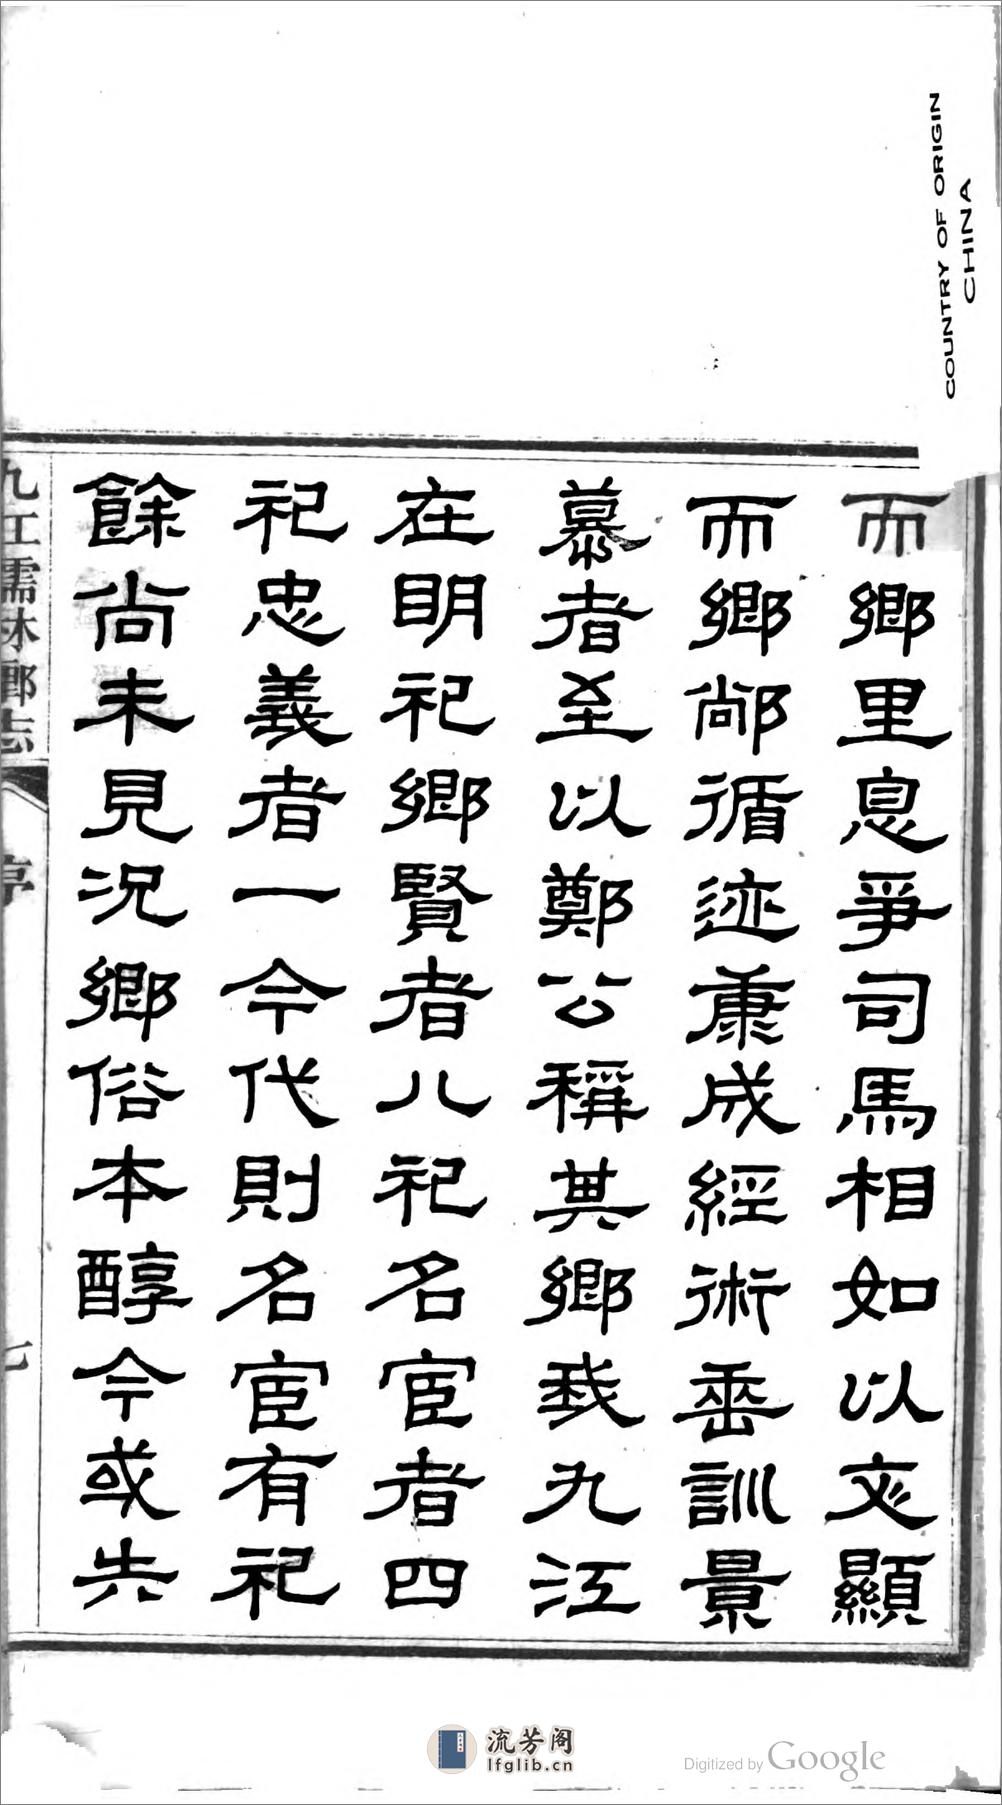 COUNTRY OF ORIGIN
CHINA
而鄉里息爭司馬相如以文顯
而鄉䣊循迹康成經術垂訓景
慕者至以鄭公稱其鄉我九江
在明祀鄉賢者八祀名宦者四
祀忠義者一今代則名宦有祀
餘尚未見況鄉俗本醇今或失
九江儒林鄉志
序
七
流芳阁
lfglib.cn
Digitized by Google